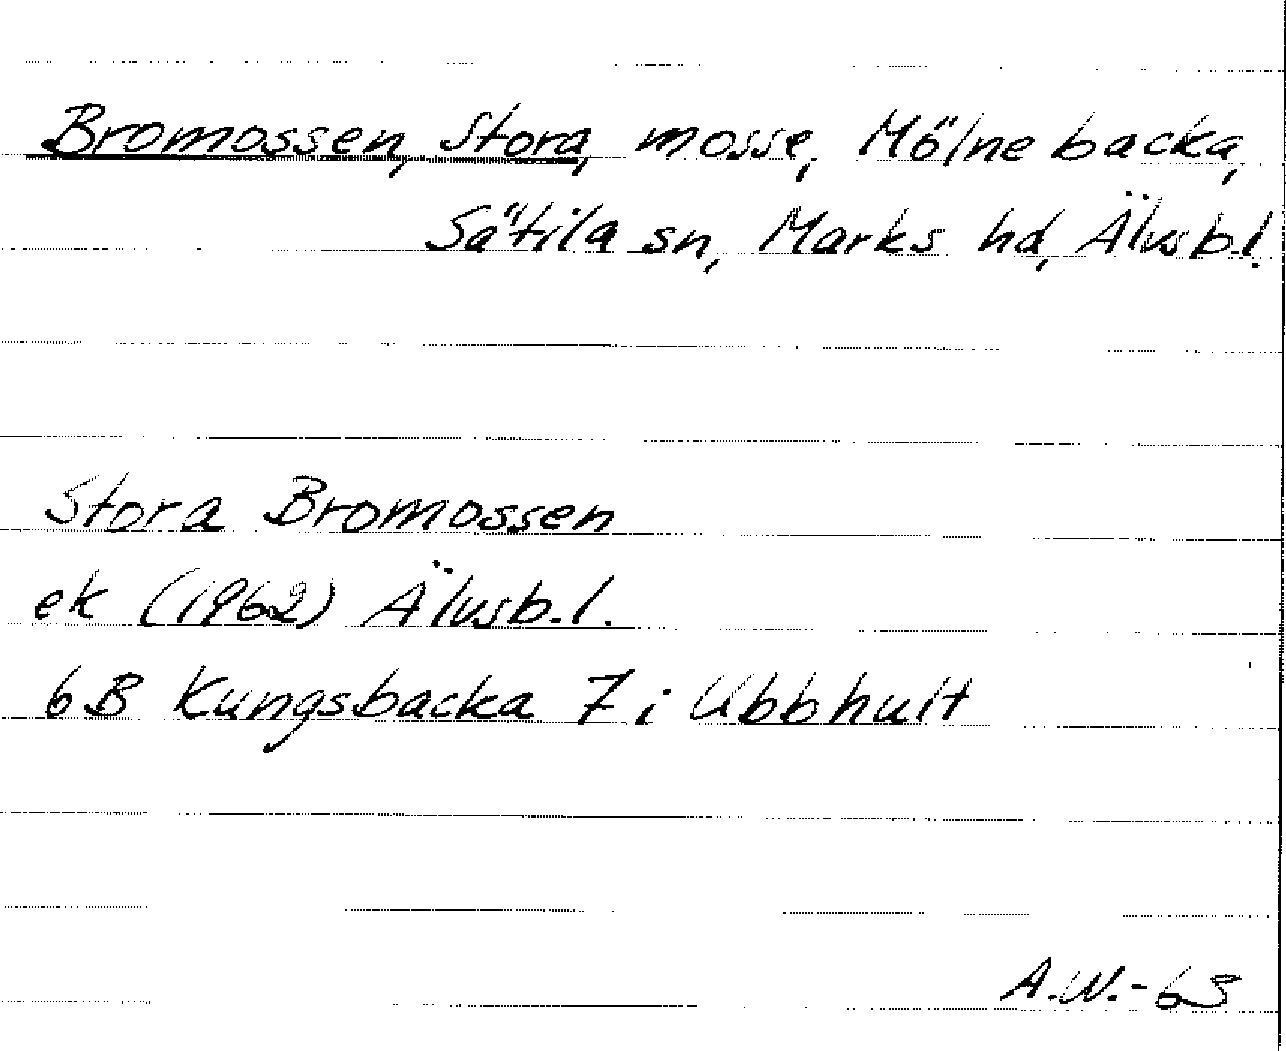 Bromossen, Stora, mosse, Mölnebacka,
Sätila sn, Marks hd, Älvsb.l.
Stora Bromossen
ek (1962) Älvsb.l.
6B Kungsbacka 7 i Ubbhult
A.W.-63